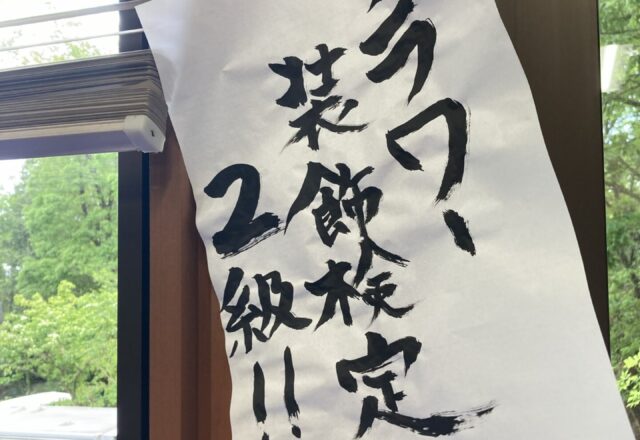 ラワー
装飾検定
2級!!